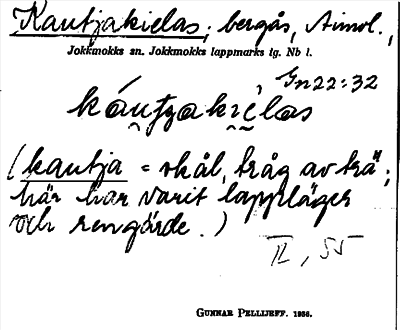 Kautjakielas, bergås, Aimol.,
Jokkmokks sn. Jokkmokks lappmarks tg. Nb l.
Gn 22:32
káutjakiẹ́las
(kautja = skål, tråg av trä;
här har varit lappläger
och rengärde.)
II, 55
GUNNAR PELLIJEFF. 1956.